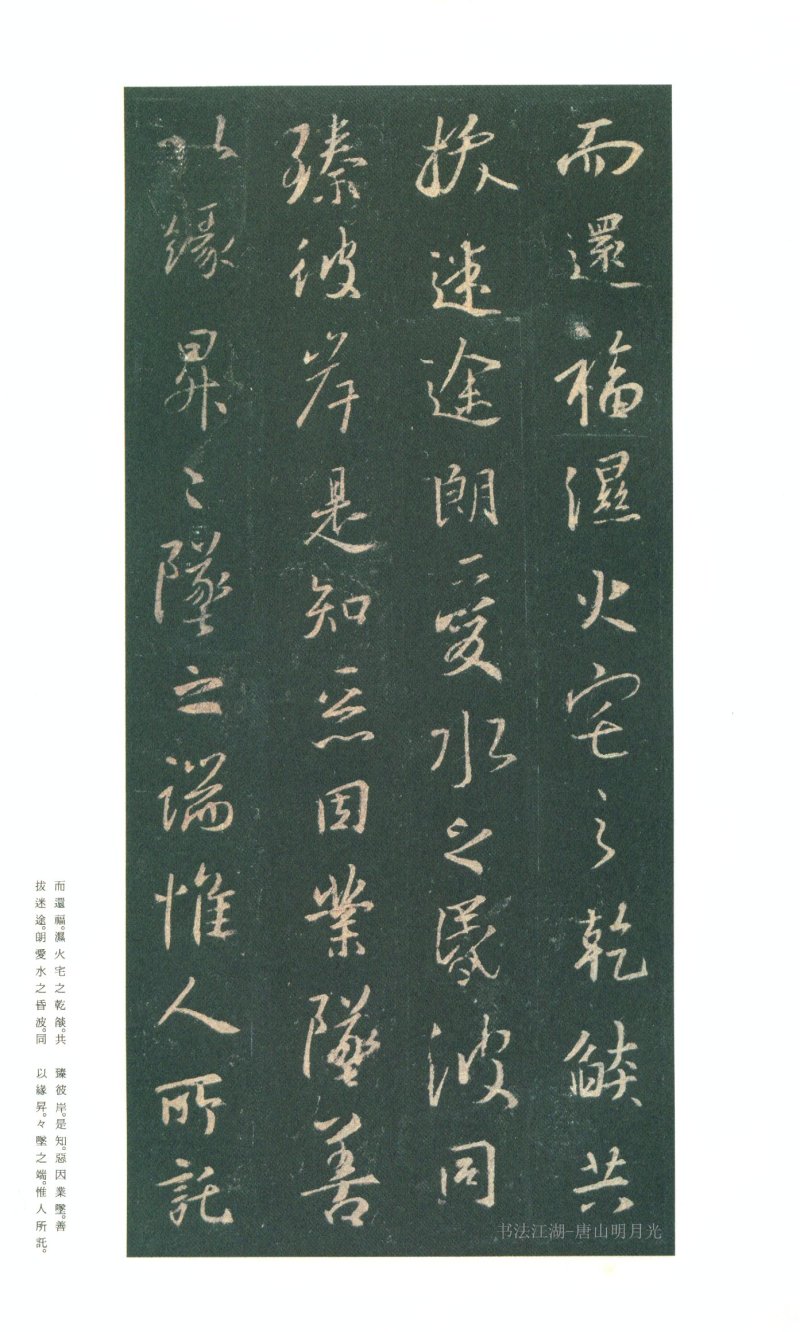 而還福濕火宅之乾燄共
拔迷途朗愛水之昬波同
臻彼岸是知惡因業墜善
以緣昇〻墜之端惟人所託
而還福。濕火宅之乾燄。共
拔迷途。朗愛水之昏波。同
臻彼岸。是知。惡因業墜。善
以緣昇。々墜之端。惟人所託。
书法江湖-唐山明月光